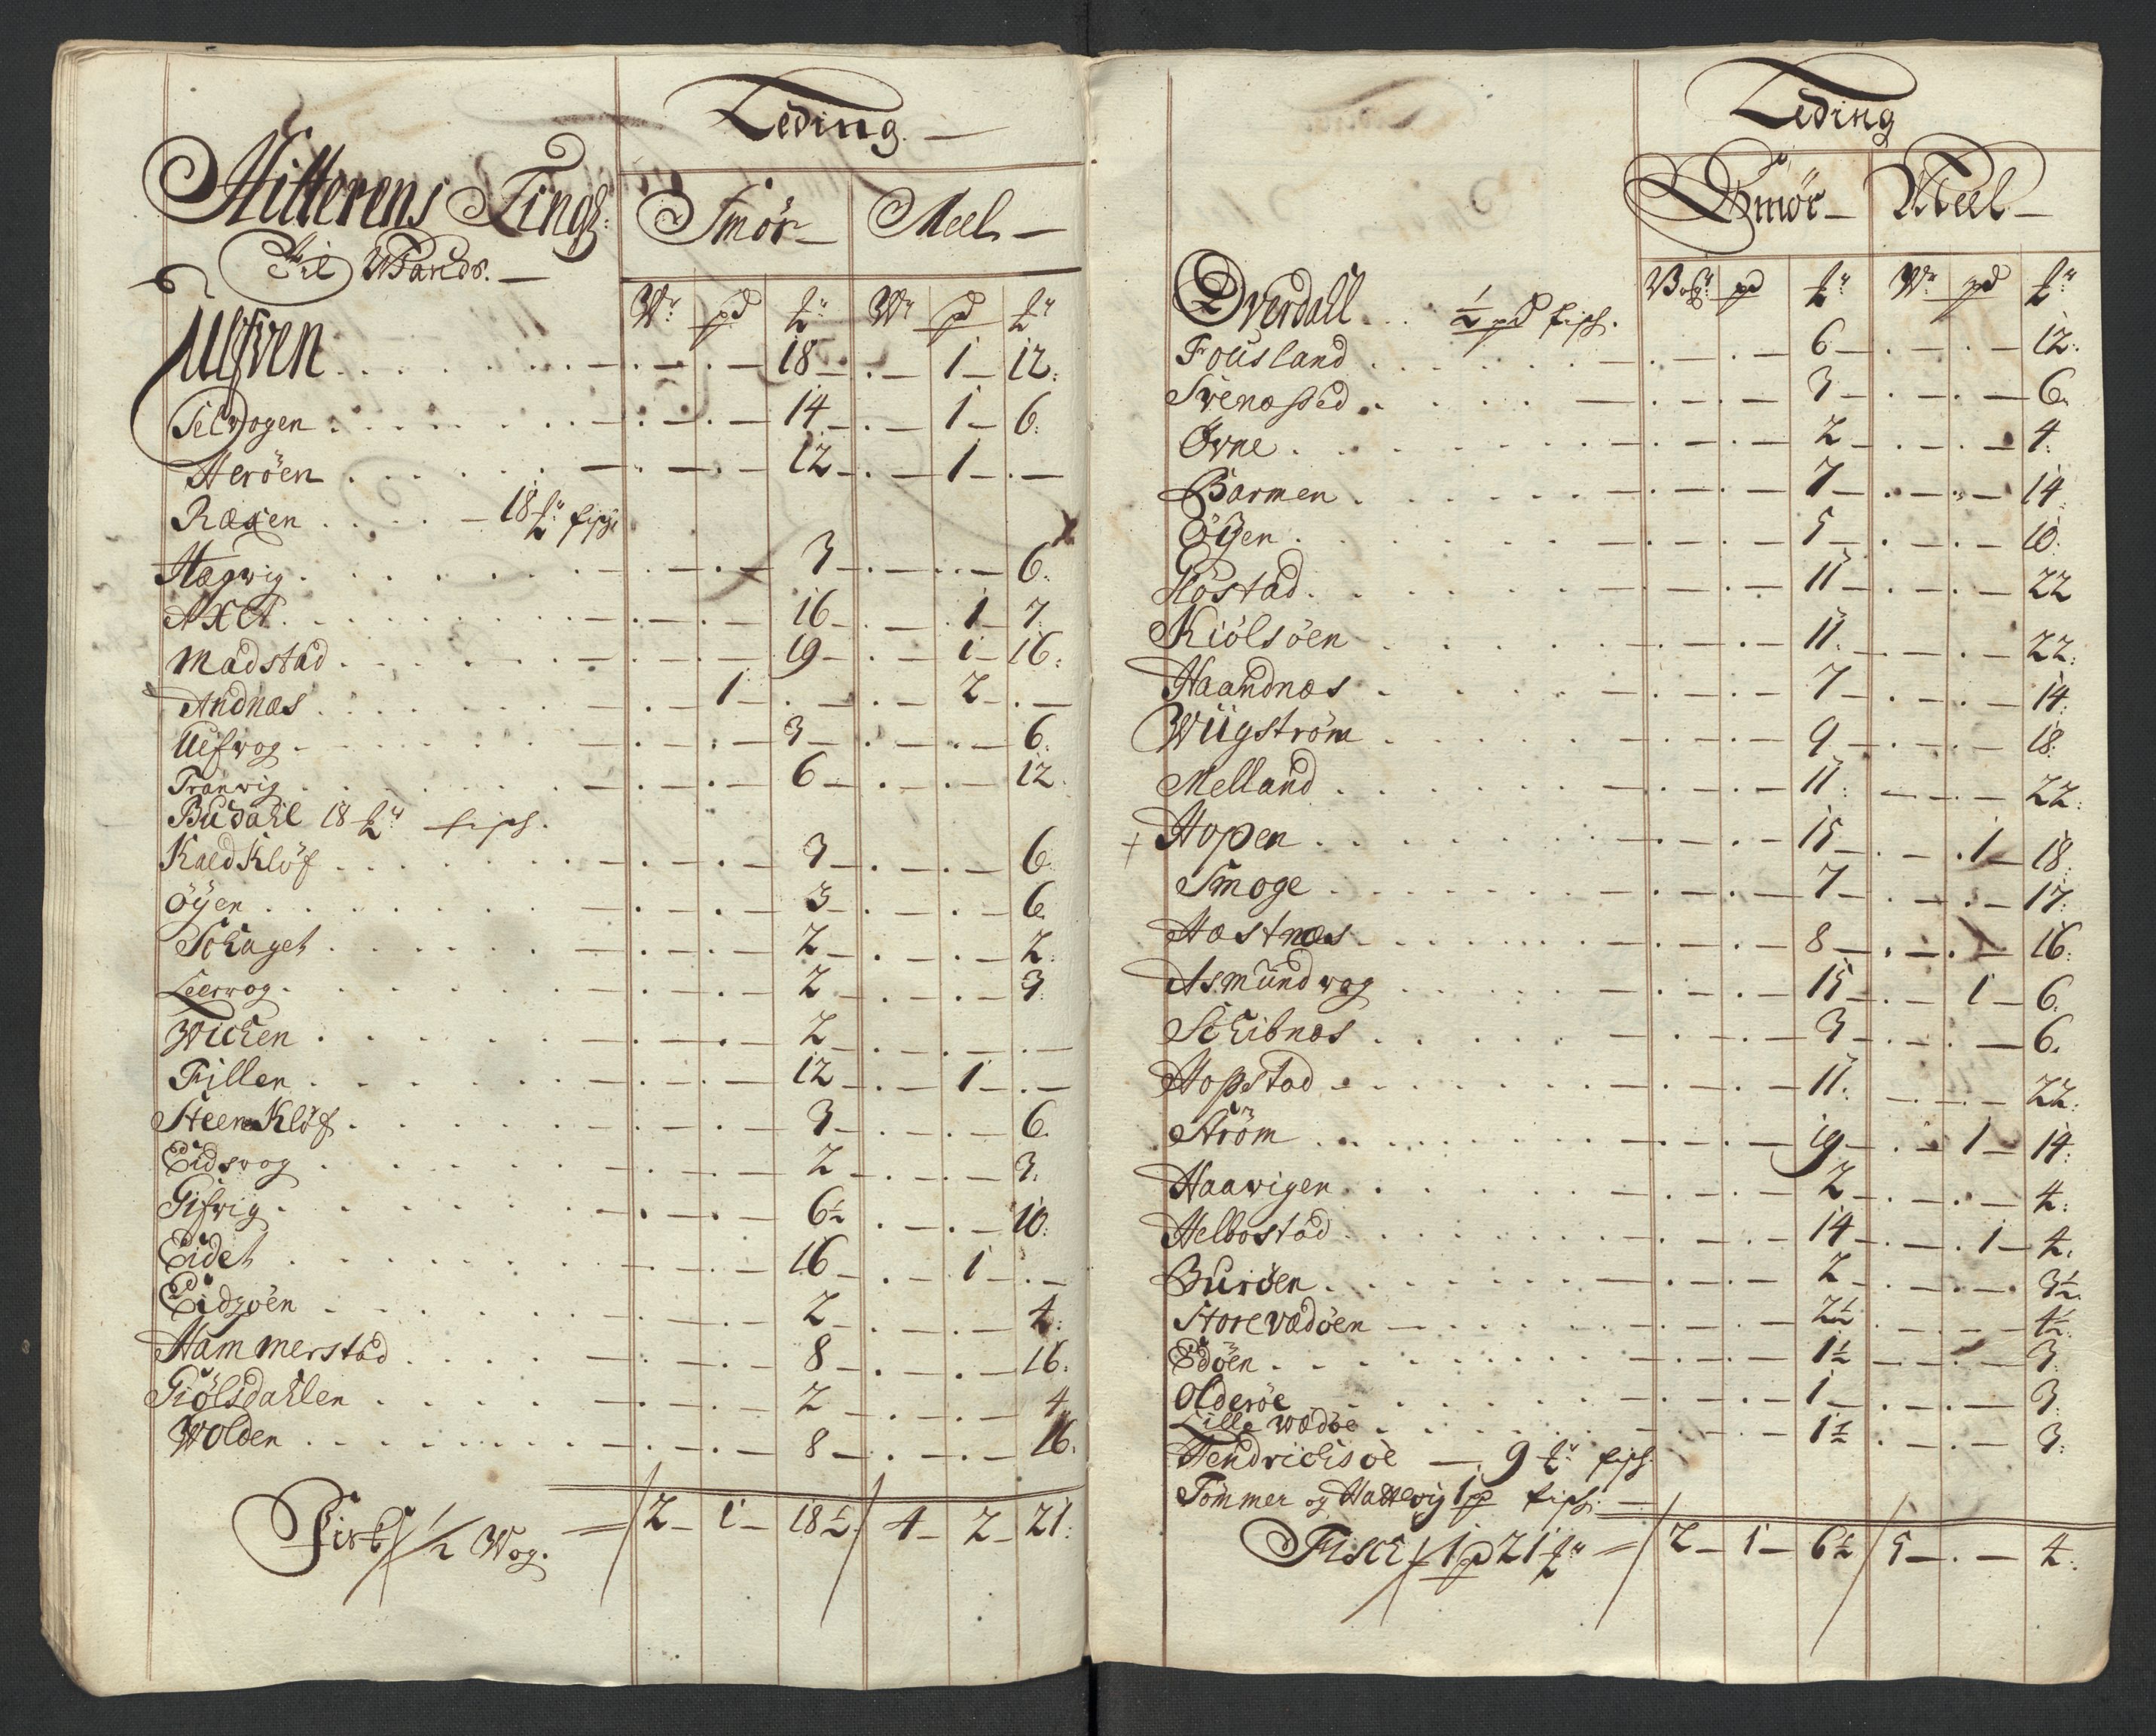 Leding.
Hitterens Tingl:
Til Wands.
Smör Meel
W: pd ℔: W: pd ℔:
Ulfven . . . 18 1 12
Selvogen . . . 14 1 6
Heröen . . . 12 1
Ræxen . . . 18 ℔: fisch
Hægwig . . . 3 6
Axet . . . 16 1 7
Madstad . . . 19 1 16
Andnæs . . . 1 2
Ulfvog . . . 3 6
Tranvig . . . 6 12
Budahl 18 ℔: fisch.
KaldKlöf . . . 3 6
Öÿen . . . 3 6
Schaget . . . 2 2
Leervog . . . 2 3
Wichen . . . 2
Fillen . . . 12 1
SteenKlöf . . . 3 6
Eidsvog . . . 2 3
Gifwig . . . 6½ 10
Eidet . . . 16 1
Eidzöen . . . 2 4
Hammerstad . . . 8 16
Giölsdahlen . . . 2 4
Wolden . . . 8 16
Fisk ½ Wog. 2 1 18½ 4 2 21
Leding
Smör Meel
Wog: pd ℔: W: pd ℔:
Overdall . . ½ pd fisch.
Fousland . . . 6 12
Svenassed . . . 3 6
Övne . . . 2 4
Barmen . . . 7 14
Öÿen . . . 5 10
Kostad . . . 11 22
Kiölsöen . . . 11 22
Haandnæs . . . 7 14
Wügström . . . 9 18
Melland . . . 11 22
+ Hopen . . . 15 1 18
Smoge . . . 7 17
Hæstnæs . . . 8 16
Asmundvog . . . 15 1 6
Schibnæs . . . 3 6
Hopstad . . . 11 22
Ström . . . 19 1 14
Haawigen . . . 2 4
Helbostad . . . 14 1 4
Buröen . . . 2 3½
Storevædöen 2½ 4½
Edöen . . . 1½ 3
Olderöe . . . 1 3
Lille Wædöe . . . 1½ 3
Hendrichsöe 9 ℔: fisch
Tömmer og Hattevig 1 pd fisch.
Fisch 1 pd 21 ℔: 2 1 6½ 5 4